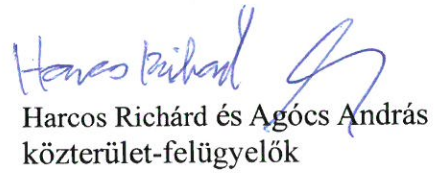 Harcos Richárd
Harcos Richárd és Agócs András
közterület-felügyelők